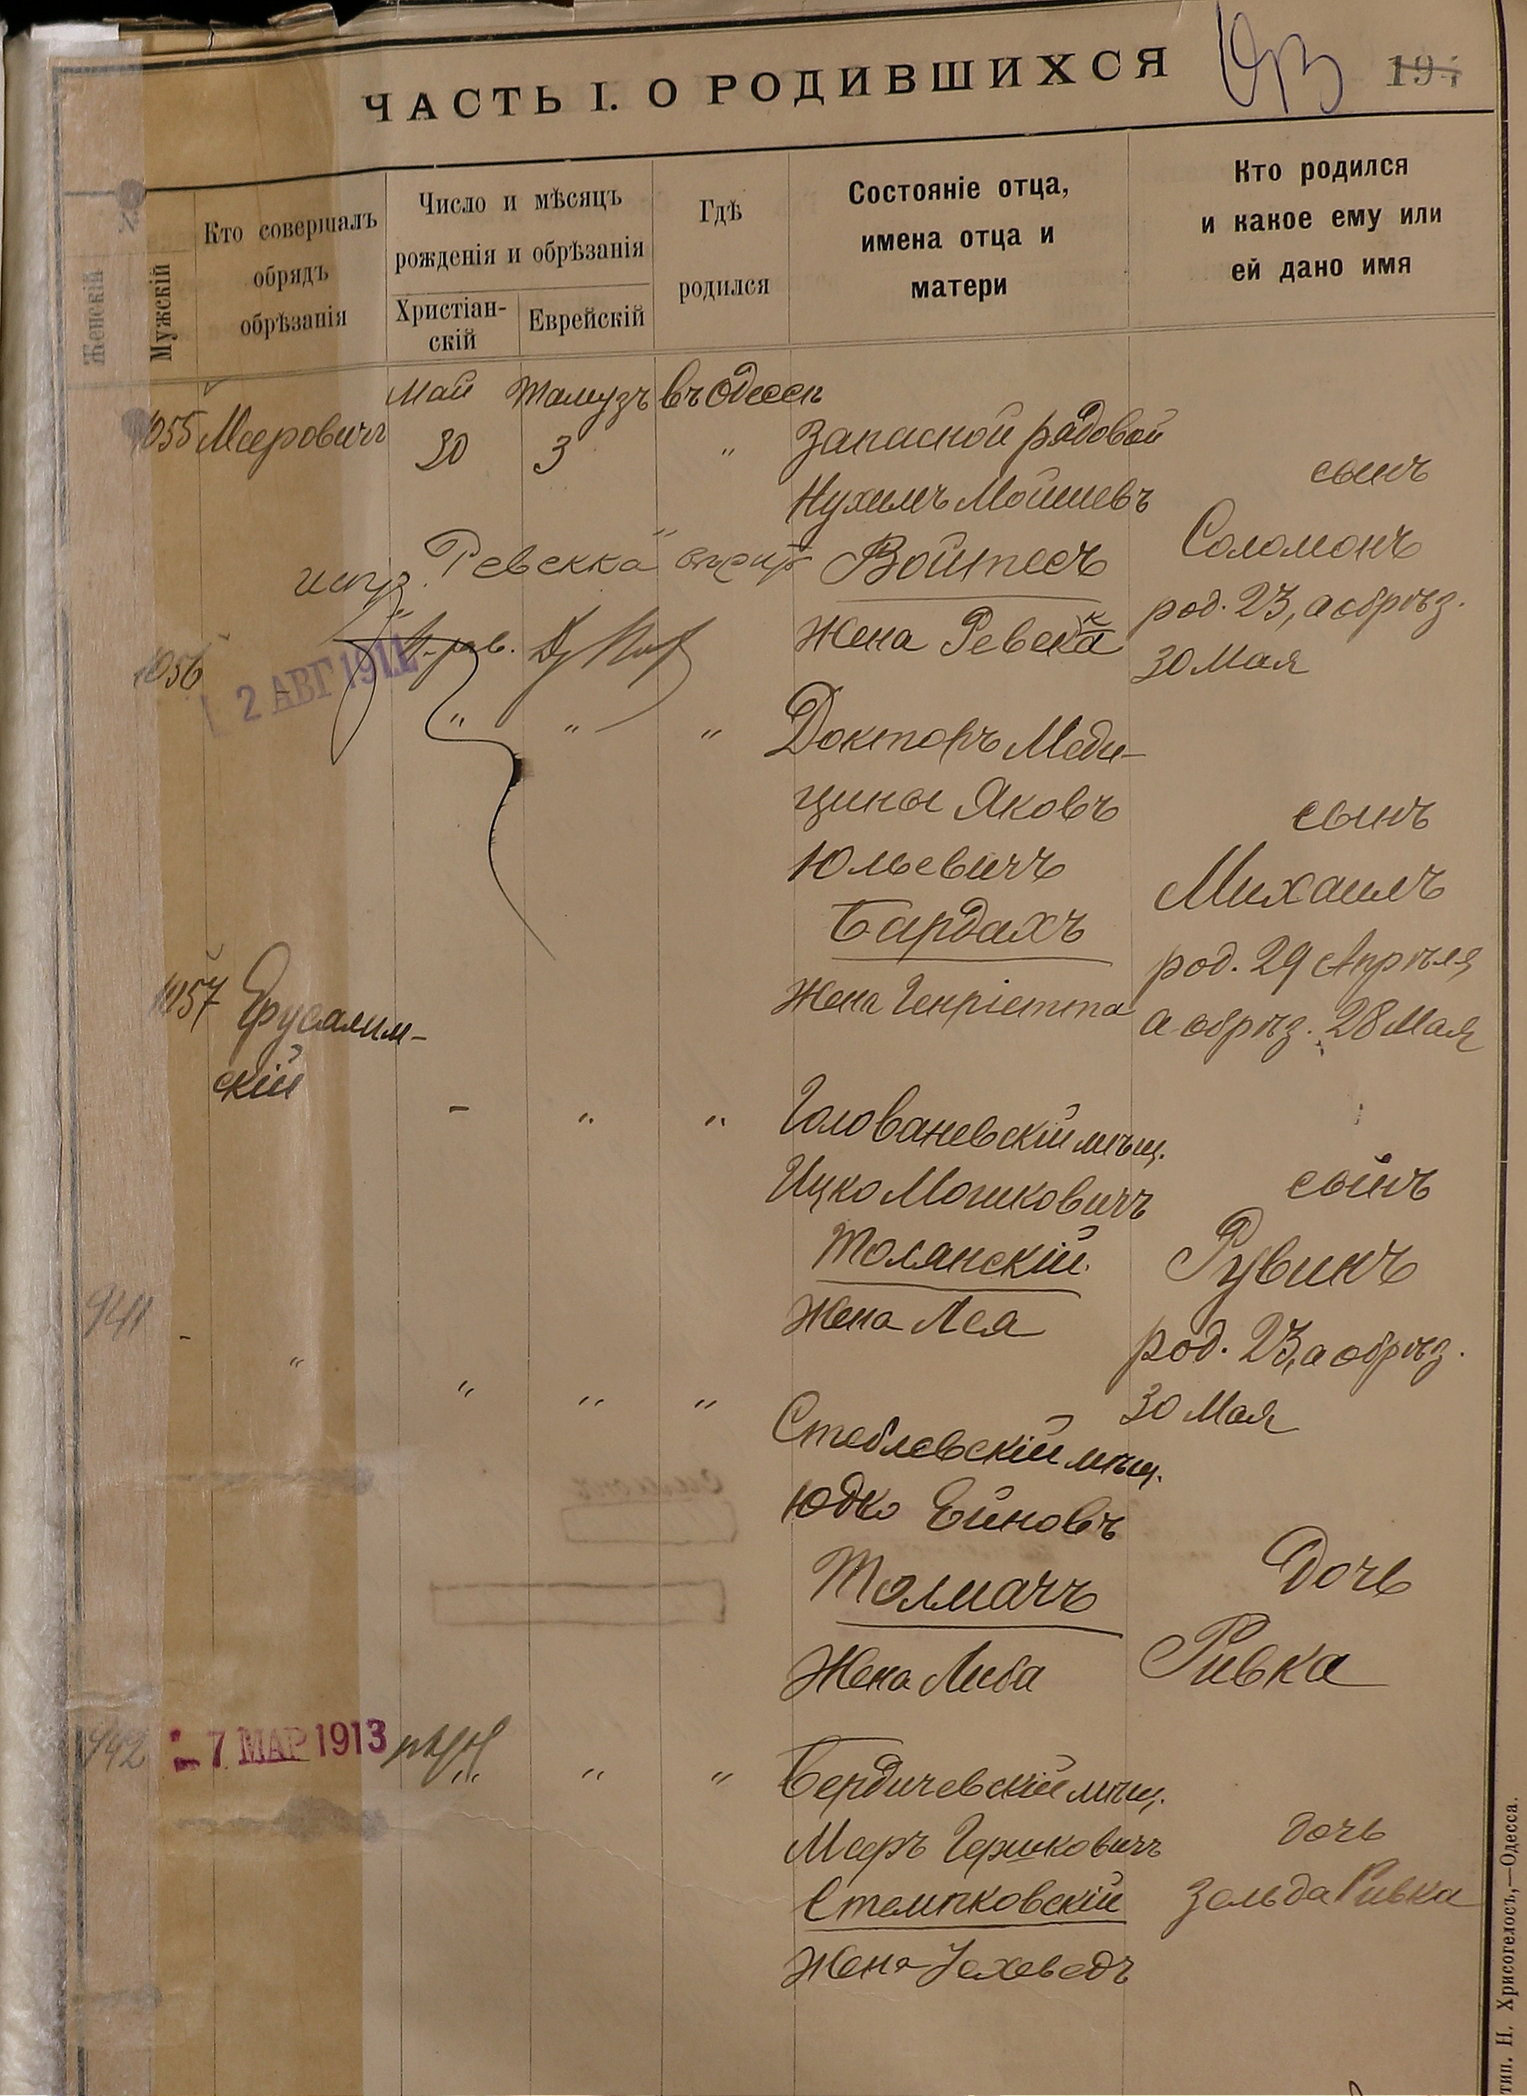 ЧАСТЬ I. О РОДИВШИХСЯ
193
194
Женскій
Мужскій
Кто совершалъ
обрядъ
обрѣзанія
Число и мѣсяцъ
рожденія и обрѣзанія
Христіан-
скій
Еврейскій
Гдѣ
родился
Состояніе отца,
имена отца и
матери
Кто родился
и какое ему или
ей дано имя
Май Тамузъ въ Одессѣ
1055 Мееровичъ 30 3 " Запасной рядовой
Нухимъ Мойшевъ
Войтесъ
Жена Ревекка
сынъ
Соломонъ
род. 23, а обрѣз.
30 Мая
испр. "Ревекка"
2 АВГ 1911
1056 " " " Докторъ Меди-
цины Яковъ
Юльевичъ
Бардахъ
Жена Генріетта
сынъ
Михаилъ
род. 29 Апрѣля
а обрѣз. 28 Мая
1057 Ерусалим-
скій
- " " Голованевскій мѣщ.
Ицко Мошковичъ
Толянскій
Жена Лея
сынъ
Рувинъ
род. 23, а обрѣз.
30 Мая
941 - " " " " Стеблевскій мѣщ.
Юдко Ейновъ
Толмачъ
Жена Либа
Дочь
Ривка
942 7 МАР 1913 " " " Бердичевскій мѣщ.
Мееръ Гершковичъ
Стемпковскій
Жена Іохеведъ
дочь
Зельда Ривка
тип. Н. Хрисогелосъ,—Одесса.